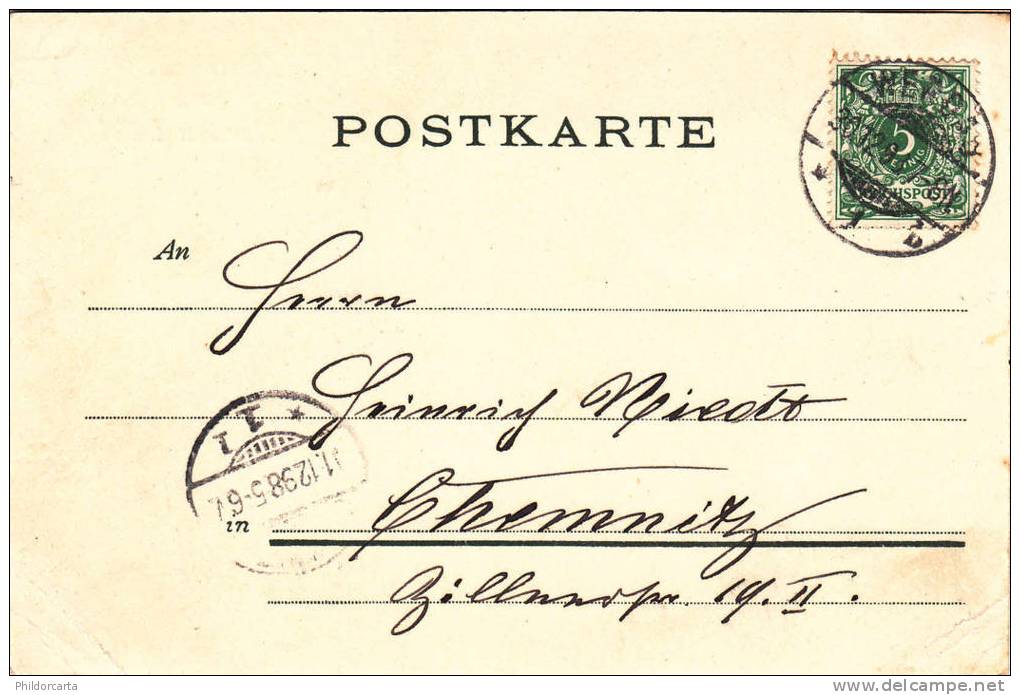 POSTKARTE
5
PFENNIG
REICHSPOST
An
Herrn
Heinrich
1.12.98 5-6
in Chemnitz
19. II.
Phildorcarta
www.delcampe.net